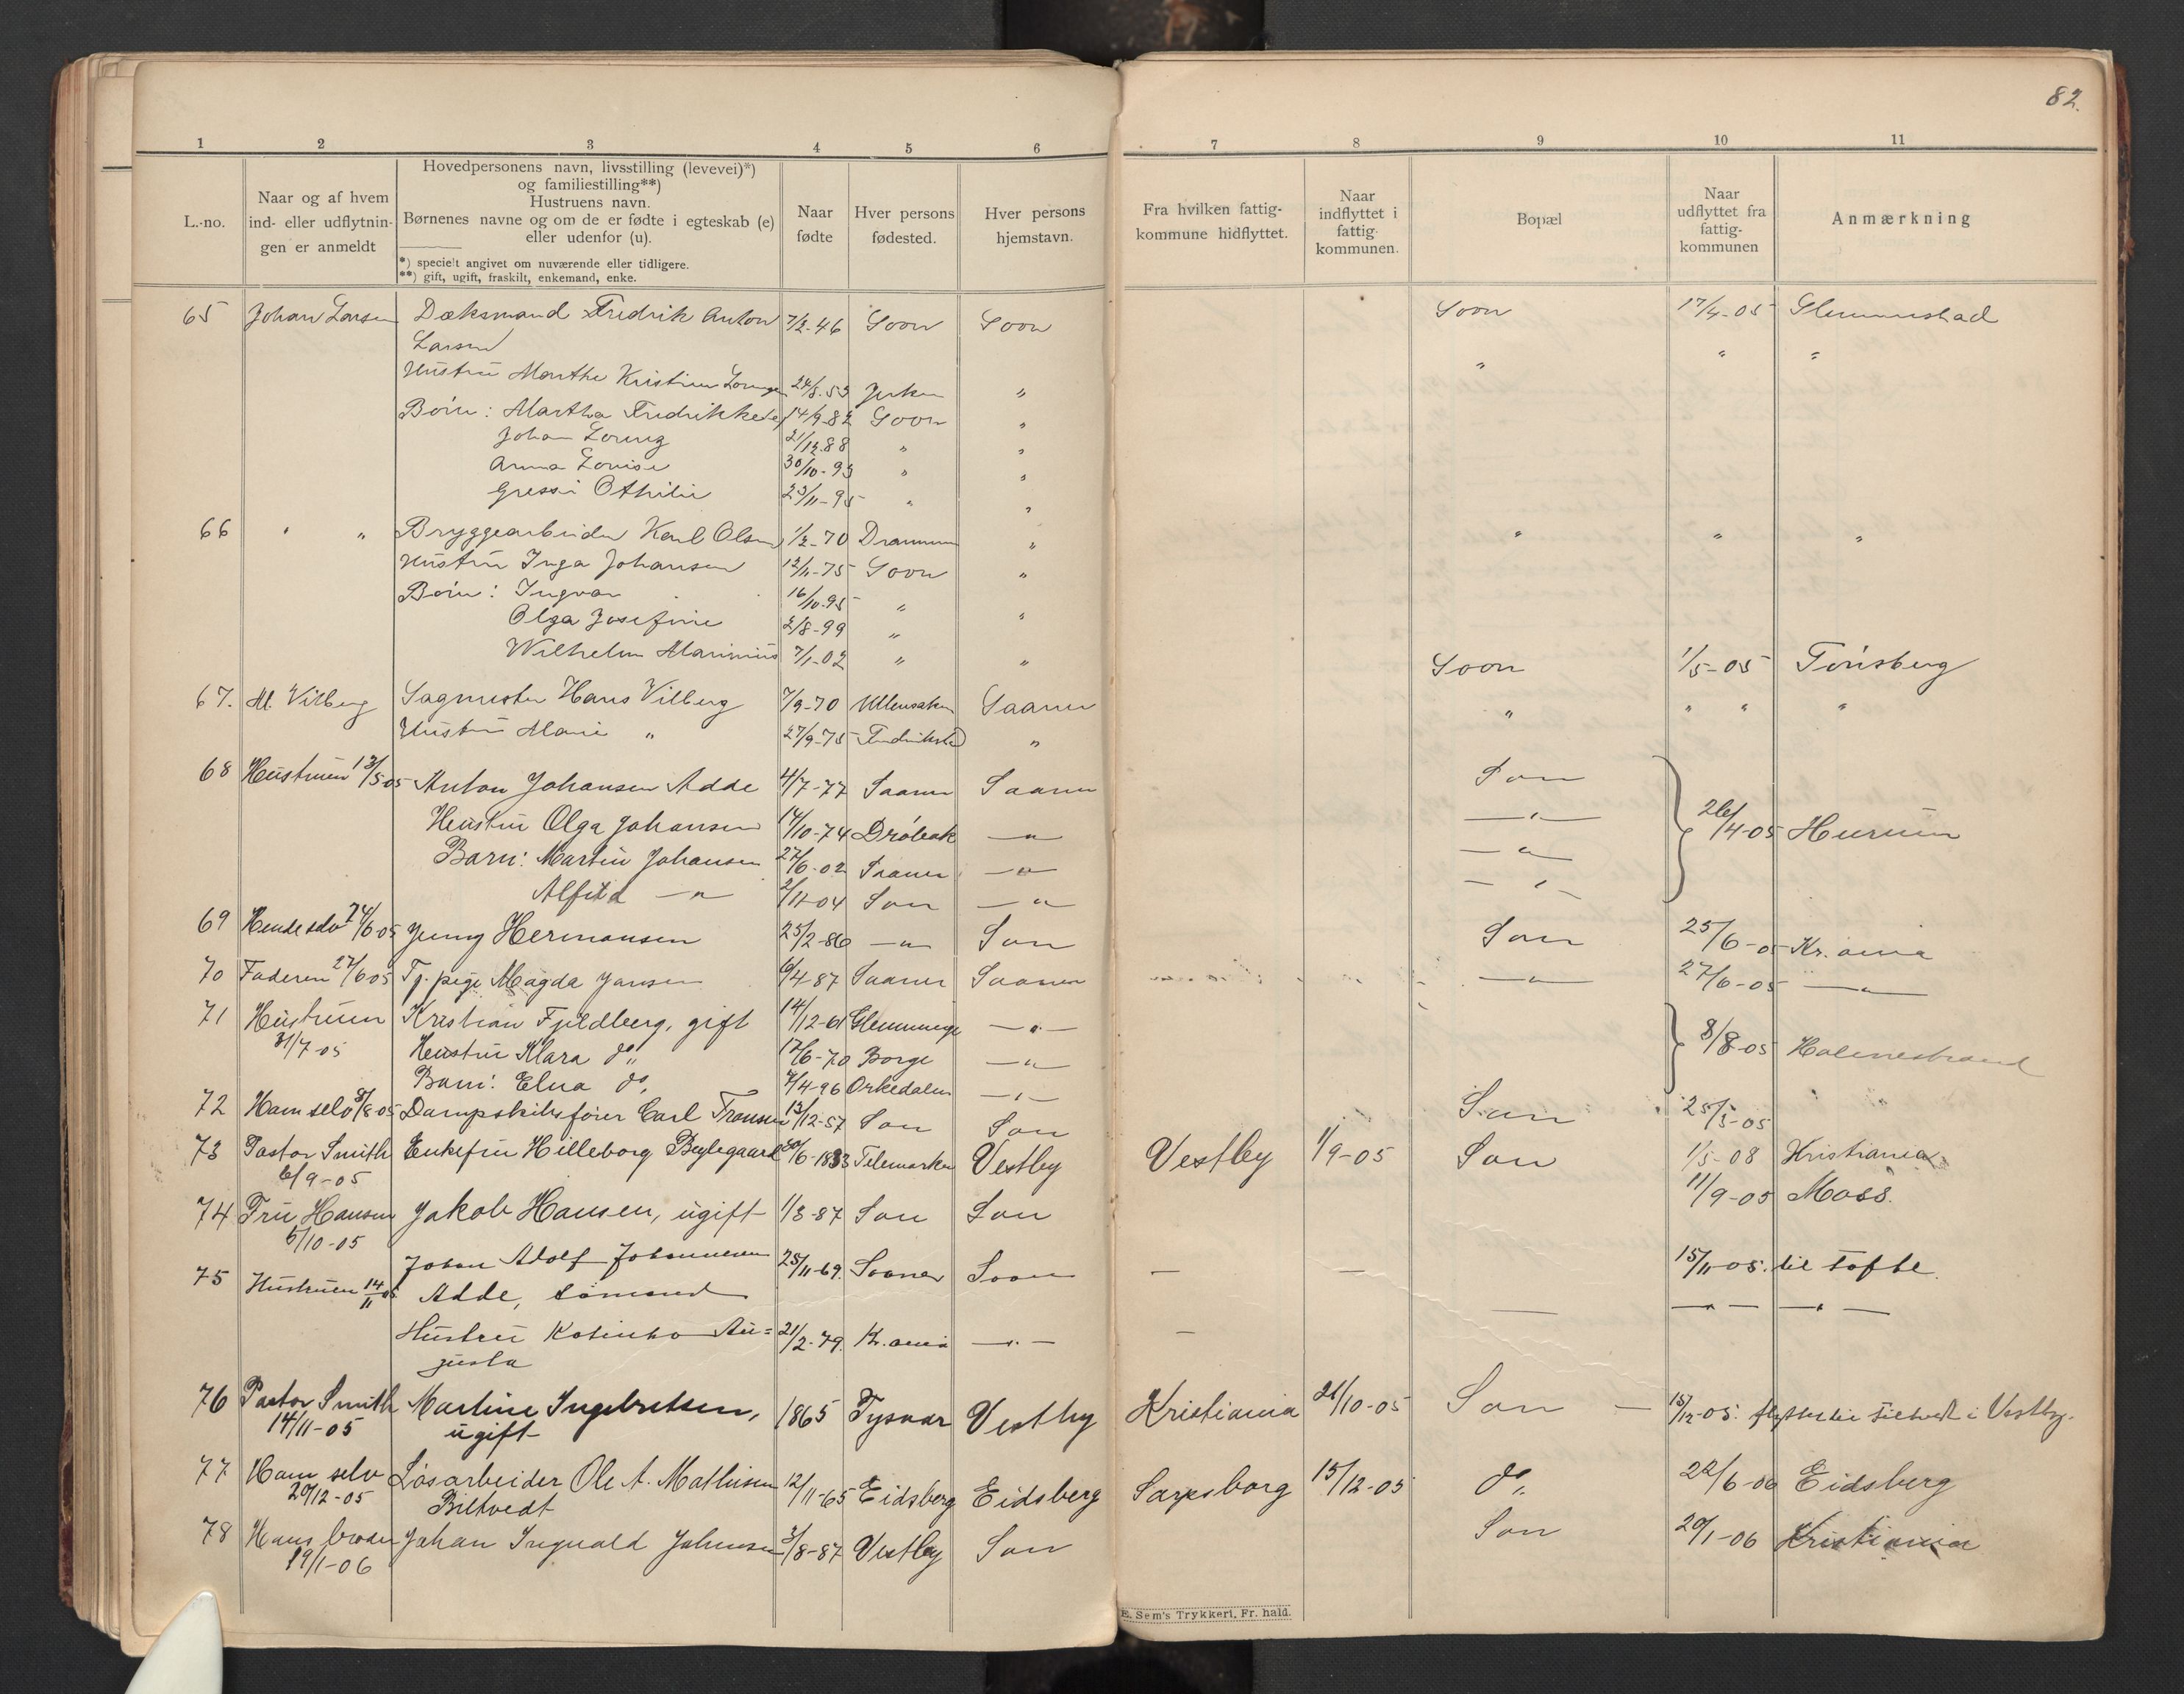 82.
1 2 3 4 5 6 7 8 9 10 11
L.-no.
Naar og af hvem
ind- eller udflytnin-
gen er anmeldt
Hovedpersonens navn, livsstilling (levevei)*)
og familiestilling**)
Hustruens navn.
Børnenes navne og om de er fødte i egteskab (e)
eller udenfor (u).
*) specielt angivet om nuværende eller tidligere.
**) gift, ugift, fraskilt, enkemand, enke.
Naar
fødte
Hver persons
fødested.
Hver persons
hjemstavn.
Fra hvilken fattig-
kommune hidflyttet.
Naar
indflyttet i
fattig-
kommunen.
Bopæl
Naar
udflyttet fra
fattig-
kommunen
Anmærkning
65 Johan Larsen Dæksmand Fredrik Anton 7/2-46 Soon Soon Soon 17/4-05
Larsen " " "
Hustru Marthe Kristine 24/8.53 "
Børn: Martha Fredrikke 14/9-82 Soon "
Johan 21/12.88 " "
Anna Louise 30/10-93 " "
Othilie 23/11-95 " "
66 " " Bryggearbeider Karl Olsen 1/2-70 Drammen " " " "
Hustru Inga Johansen 12/11-75 Soon "
Børn: Ingvar 16/10.95 "
Olga Josefine 2/8-99 " "
Wilhelm Marinius 7/1-02 " " Soon 1/5-05 Tönsberg
67. M. Vilberg Sagmester Hans Vilberg 7/9-70 Ullensaker Saaner " " " "
Hustru Marie " 27/9-75 Fredrikstad "
68 Hustruen 13/5 05 Anton Johansen Adde 4/7-77 Saaner Saaner Son
Hustru Olga Johansen 14/10-74 Drøbak —"— —"— 26/4-05 Hurum
Barn: Martin Johansen 27/6-02 Saaner —"— —"—
Alfild —"— 2/11-04 Son —"— —"—
69 Hende selv 24/6-05 Jenny Hermansen 25/2-86 —"— Son Son 25/6-05 Kr.ania
70 Faderen 27/6 05 Tj. pige Magda Jansen 6/4-87 Saaner Saaner —"— 27/6-05 —"—
71 Hustruen Kristian Fjeldberg, gift 14/12-61 Glemminge —"—
31/7-05 Hustru Klara do,, 17/6-70 Borge —"— 8/8-05 Holmestrand
Barn: Elna do, 7/4-96 Orkedalen —"—
72 Ham selv 8/8-05 Dampskibsfører Carl Fransen 13/12-57 Son Son Son 25/5-05
73 Pastor Smith Enkefru Hilleborg 20/6-1833 Telemarken Vestby Vestby 1/9-05 Son 1/5-08 Kristiania
6/9-05
74 Fru Hansen Jakob Hansen, ugift 1/3-87 Son Son 11/9-05 Moss.
6/10-05
75 Hustruen 14/11 05 Johan Adolf Johannesen 25/11-69. Saaner Soon — — 15/11-05. til Tofte.
Adde, sømand — —"— —"—
Hustru Katinka Au= 21/2-79. Kr.ania —"— —
gusta
76 Pastor Smith Martine Ingebretsen, 1865 Tysvær Vestby Kristiania 21/10-05 Son — 15/12-05. flyttet til i Vestby.
14/11-05 ugift
77 Ham selv Løsarbeider Ole A. Mathisen 12/11-65 Eidsberg Eidsberg Sarpsborg 15/12-05 do,, 22/6-06 Eidsberg
20/12-05 Biltvedt
78 Hans broder Johan Ingvald Johnsen 3/8-87 Vestby Son Son 20/1-06 Kristiania
19/1-06
E. Sem's Trykkeri, Fr. hald.